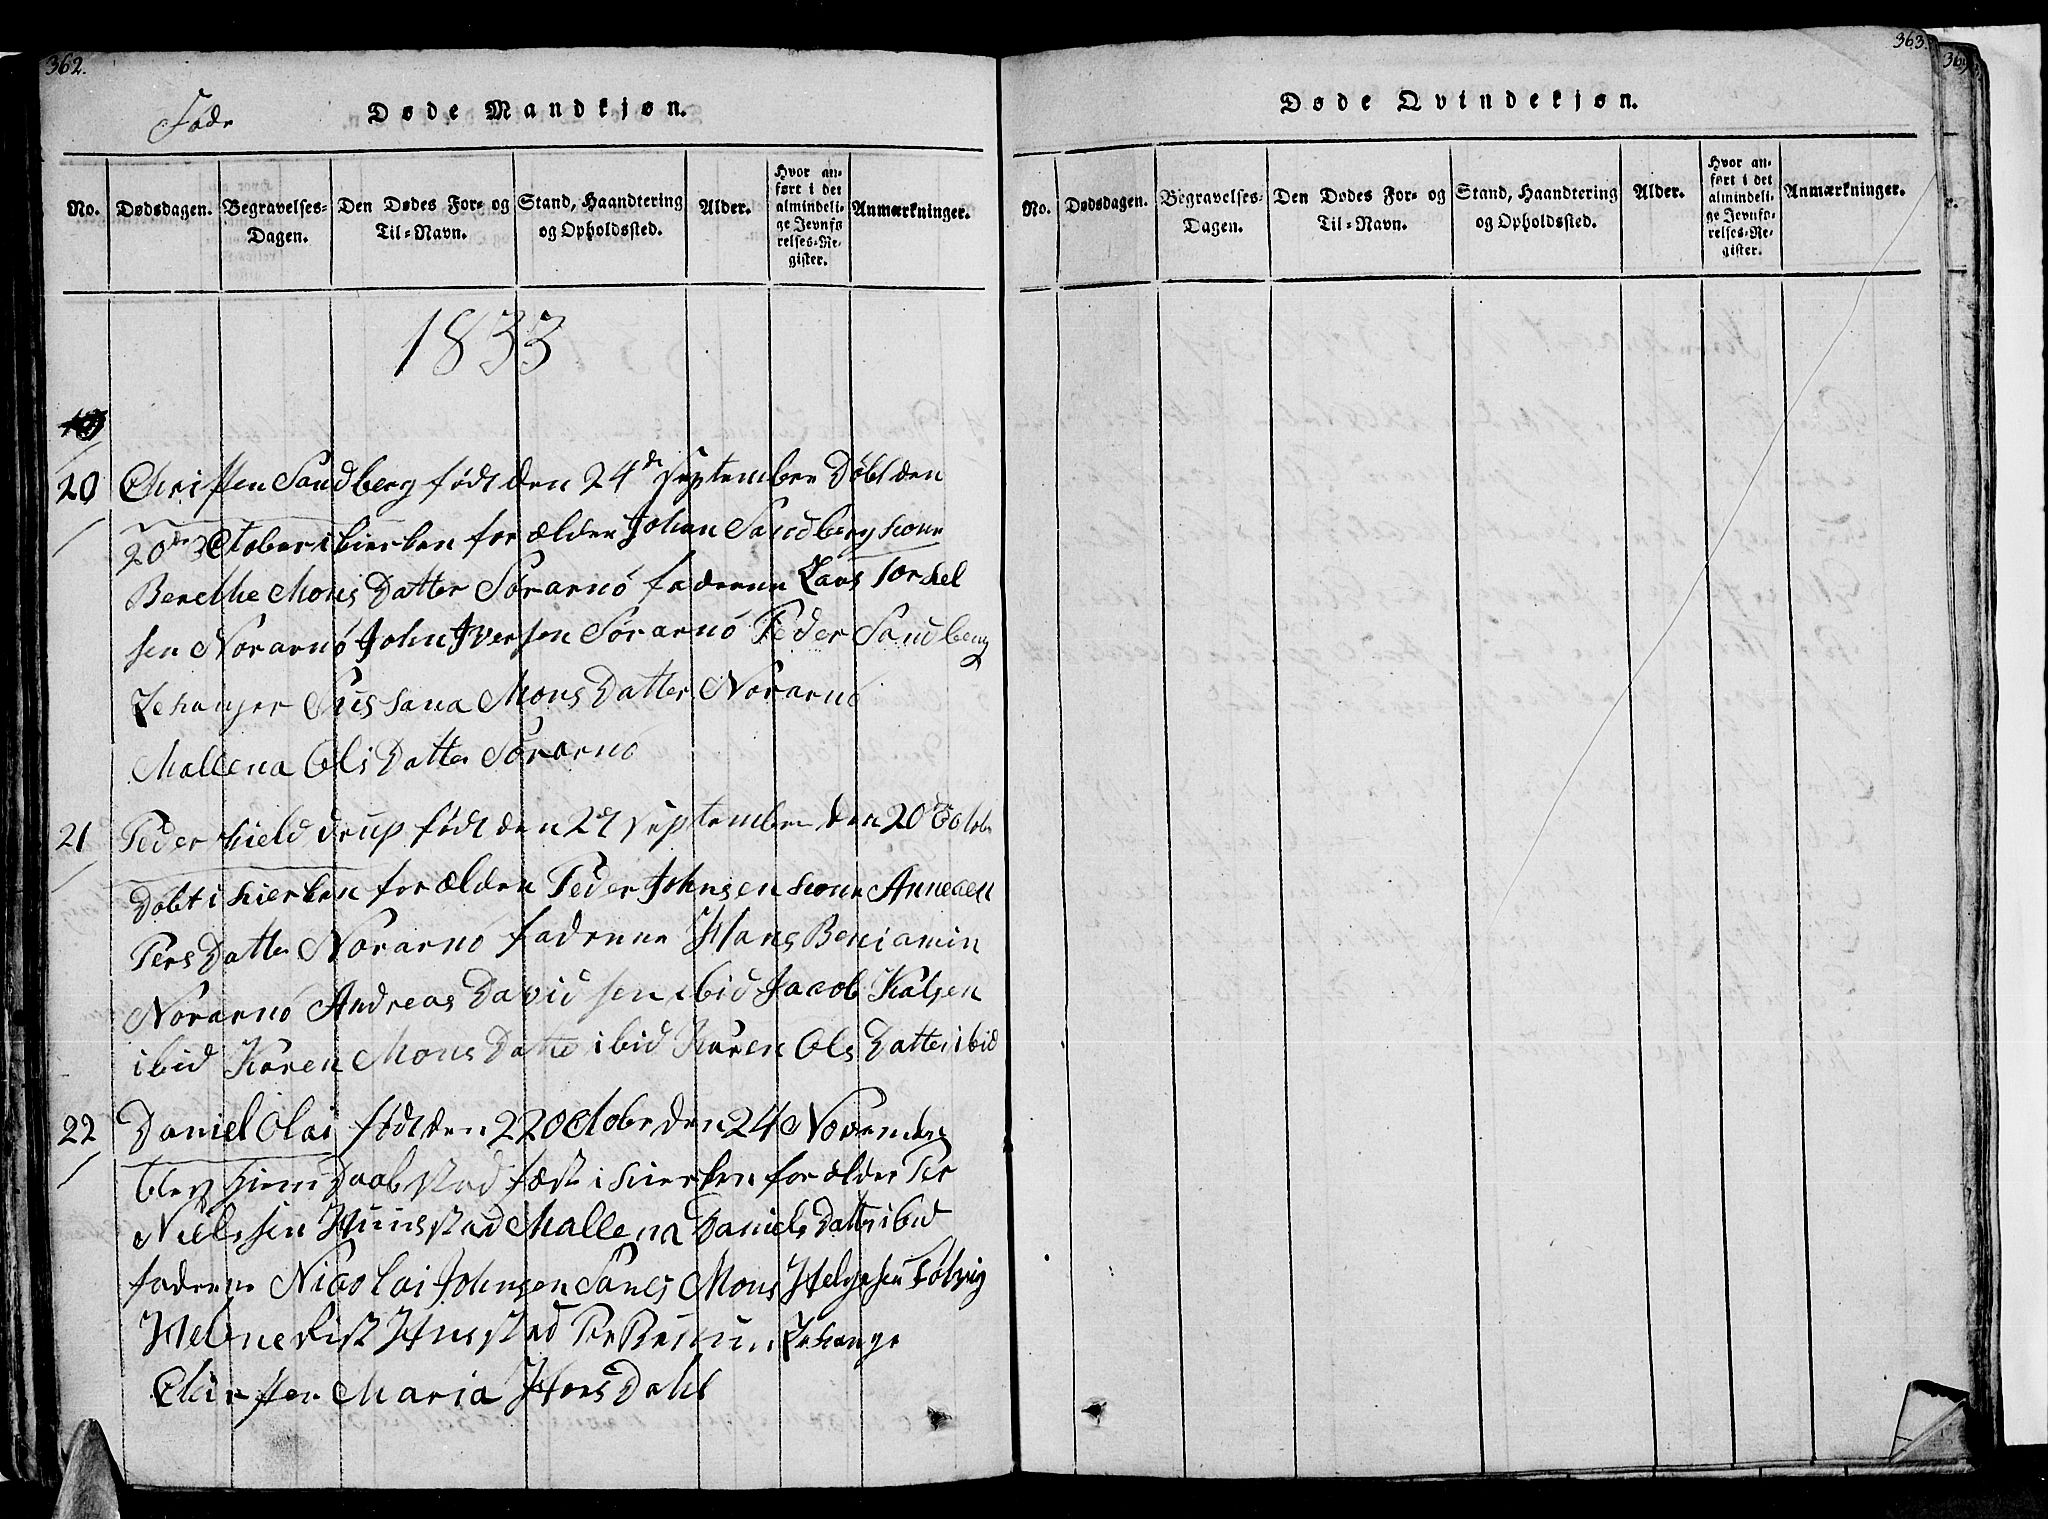 362.
Døde Mandkjøn.
No.
Dødsdagen.
Begravelses-
Dagen.
Den Dødes For- og
Til-Navn.
Stand, Haandtering
og Opholdssted.
Alder.
Hvor an-
ført i det
almindeli-
ge Jevnfø
relses-Re-
gister.
Anmærkninger.
1833
20 Christen Sandberg født den 24de September Døbt den
20de October i kierken forælder Johan Sandberg kone
Berethe Mons Datter Sørarnø faderne Lars Torkel
sen Norarnó John Iversen Sørarnó Peder Sandberg
Sussana Mons Datter Norarnó
Mallena Ols Datter Sørarnó
21 Peder hield drup født den 29 September den 20 Octobr
Døbt i kierken forælder Peder Johnsen kone
Pers Datter Norarnó fadrene Hans Beniamin
Norarnó Andreas David sen ibid Jacob
ibid Karen Mons Datter ibid Karen Ols Datter ibid
22 Daniel Olai født den 22 Octobr den 24 Novembr
blev hiem Daab stad fæst i kierken forælder Per
Niels sen Hunstad Mallena Daniels Datter ibid
faderne Nicolai Johnsen Mons Helgesen
Hunstad Per
Maria
363.
Døde Qvindekjøn.
No.
Dødsdagen.
Begravelses-
Dagen.
Den Dødes For- og
Til-Navn.
Stand, Haandtering
og Opholdssted.
Alder.
Hvor an-
ført i det
almindeli-
ge Jevnfø-
relses-Re-
gister.
Anmærkninger.